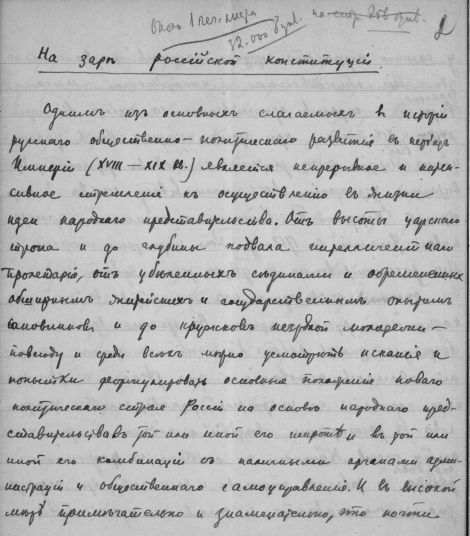 около 1 печ. листа
32.000 букв.
2
На зарѣ россійской конституціи.
Однимъ изъ основныхъ слагаемыхъ в исторіи
русскаго общественно-политическаго развитія въ періодъ
Имперіи (XVIII — XIX вв.) является непрерывное и интен-
сивное стремленіе къ осуществленію въ жизни
идеи народнаго представительства. Отъ высоты царскаго
трона и до глубины подвала интеллигентнаго
пролетарія, отъ убѣленныхъ сѣдинами и обремененныхъ
обширнымъ житейскимъ и государственнымъ опытомъ
сановниковъ и до кружковъ незрѣлой молодежи —
повсюду и среди всѣхъ можно усмотрѣть исканія и
попытки формулировать основные положенія новаго
политическаго строя Россіи на основѣ народнаго пред-
ставительства въ той или иной его широтѣ и въ той или
иной его комбинаціи съ наличными органами адми-
нистраціи и общественнаго самоуправленія. И въ высокой
мѣрѣ примѣчательно и знаменательно, что почти